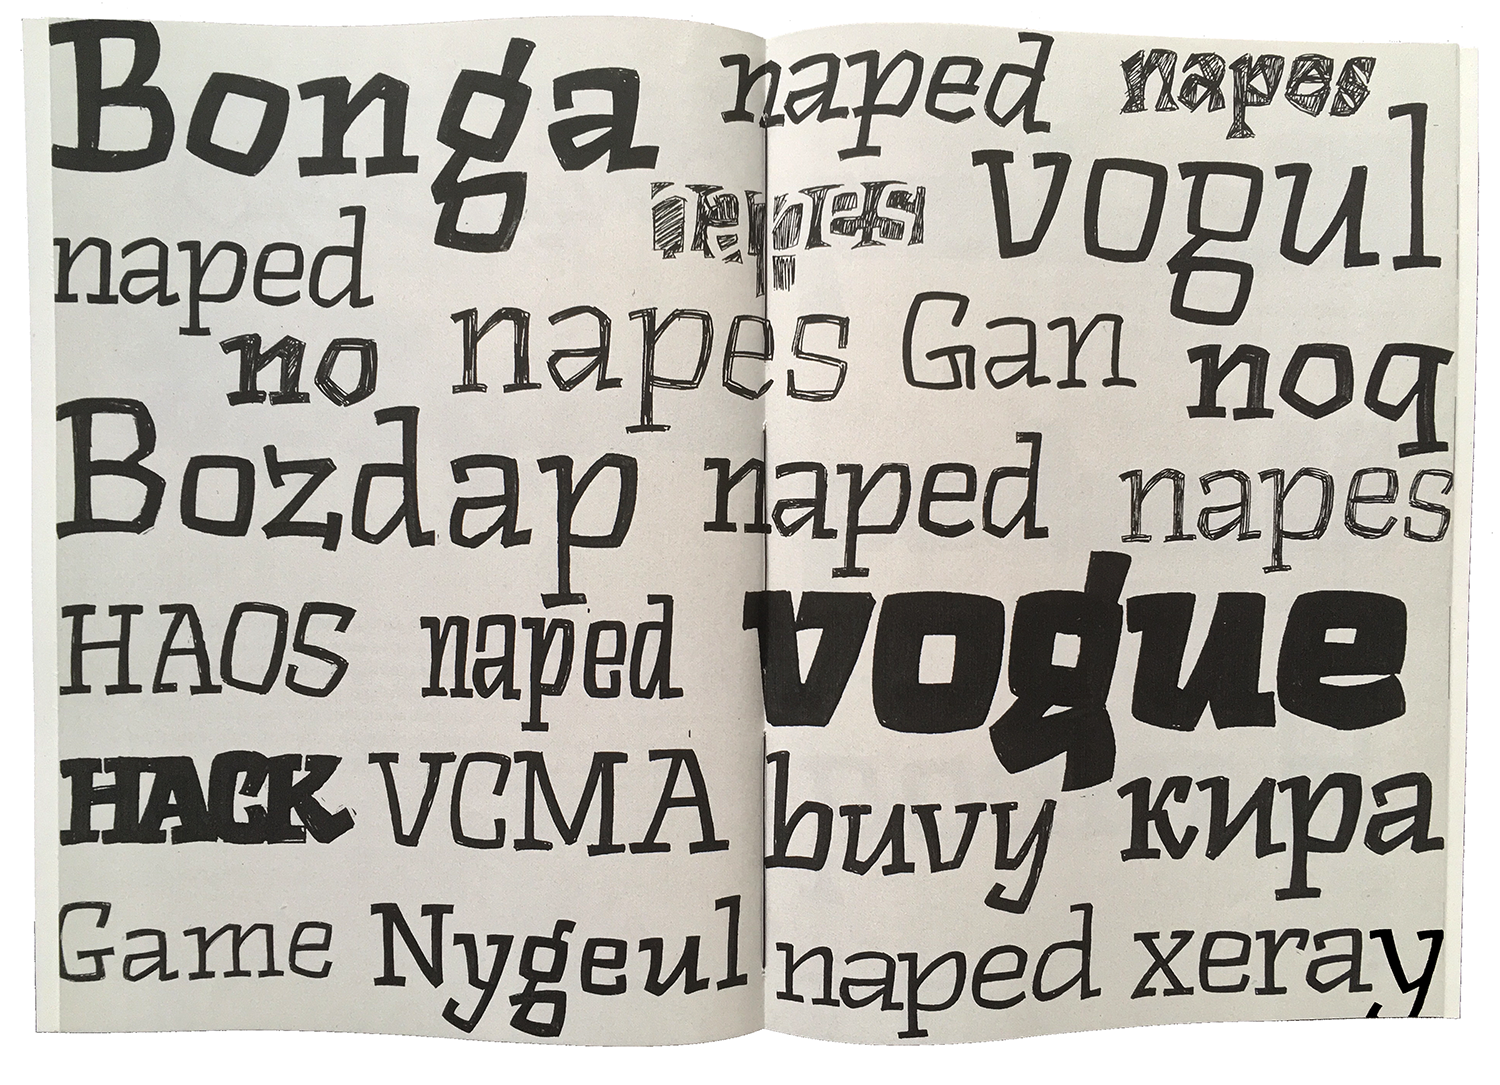 Bonga naped napes
napes vogul
naped
no napes Gan noq
Bozdap naped napes
HAOS naped vogue
HACK VCMA buvy кира
Game Nygeul naped xeray